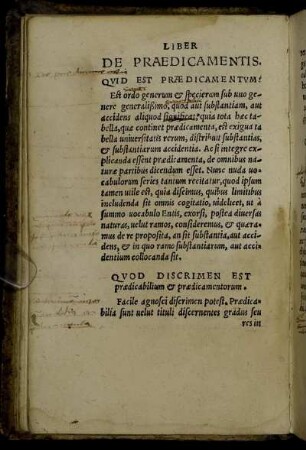 LIBER
DE PRAEDICAMENTIS.
QVID EST PRÆDICAMENTVM?
Est ordo generum & specierum sub uno ge
nere generalissimo, quod aut substantiam, aut
accidens aliquod significat, quia tota hæc ta-
bella, quæ continet prædicamenta, est exigua ta
bella uniuersitatis rerum, distribuit substantias,
& substantiarum accidentia. Ac si integre ex-
plicanda essent prædicamenta, de omnibus na-
turæ partibus dicendum esset. Nunc nuda uo-
cabulorum series tantum recitatur, quod ipsum
tamen utile est, quia discimus, quibus limitibus
includenda sit omnis cogitatio, uidelicet, ut à
summo uocabulo Entis, exorsi, postea diuersas
naturas, uelut ramos, consideremus, & quæra-
mus de re proposita, an sit substantia, aut acci
dens, & in quo ramo substantiarum, aut acci
dentium collocanda sit.
QVOD DISCRIMEN EST
prædicabilium & prædicamentorum.
Facile agnosci discrimen potest. Prædica-
bilia sunt uelut tituli discernentes gradus seu
res in